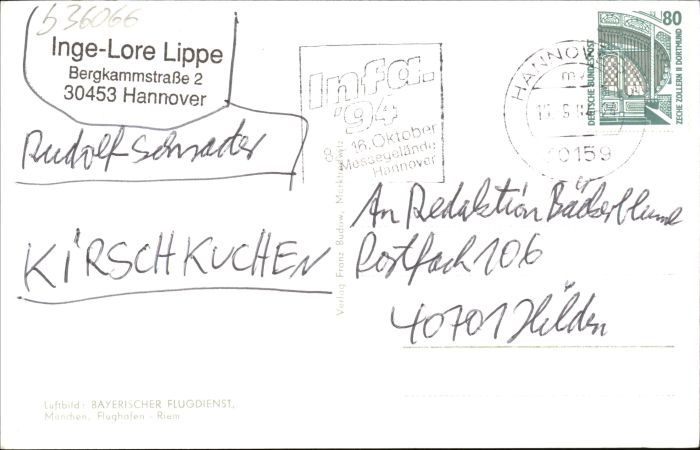 b36066
Inge-Lore Lippe
Bergkammstraße 2
30453 Hannover
Rudolf Schrader
KIRSCHKUCHEN
Infa.
'94
8. 16. Oktober
Messegelände
Hannover
HANNOVER
30159
80
DEUTSCHE BUNDESPOST
ZECHE ZOLLERN II DORTMUND
An Redaktion Bäckerblume
Postfach 106
40701 Hilden
Verlag Franz Budow, Marktredwitz
Luftbild: BAYERISCHER FLUGDIENST,
München, Flughafen - Riem